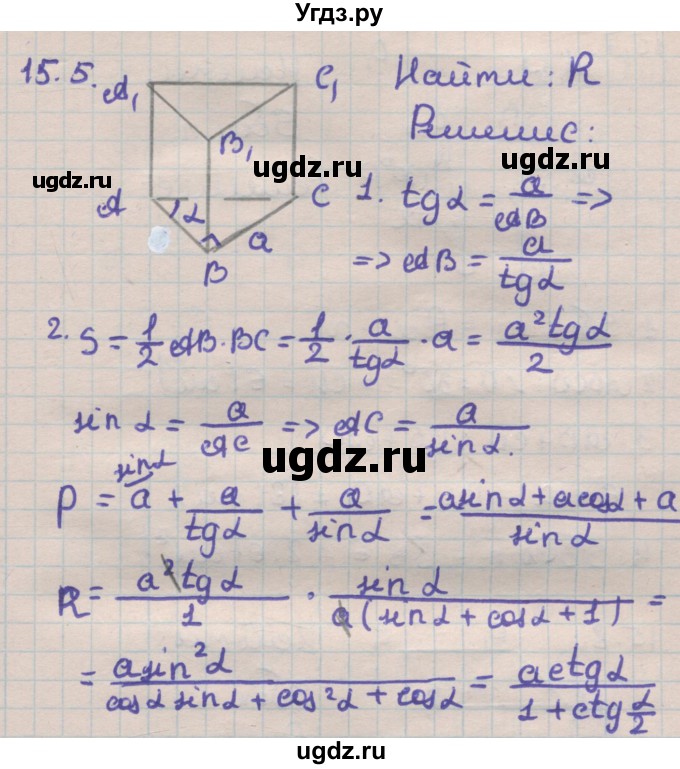 Угдз.ру
15.5.
A₁ C₁ Найти: R
B₁ Решение:
ugdz.ru ugdz.ru
ugdz.ru
A C α a B
1. tgα = a/AB =>
=> AB = a/tgα
2. S = 1/2 AB·BC = 1/2 · a/tgα · a = a²tgα/2
sin α = a/AC => AC = a/sinα.
ugdz.ru
sinα
P = a + a/tgα + a/sinα = asinα+acosα+a/sinα
ugdz.ru ugdz.ru
R = a²tgα/1 · sinα/a(sinα+cosα+1) =
= asin²α/cosαsinα+cos²α+cosα = actgα/1+ctg α/2
ugdz.ru